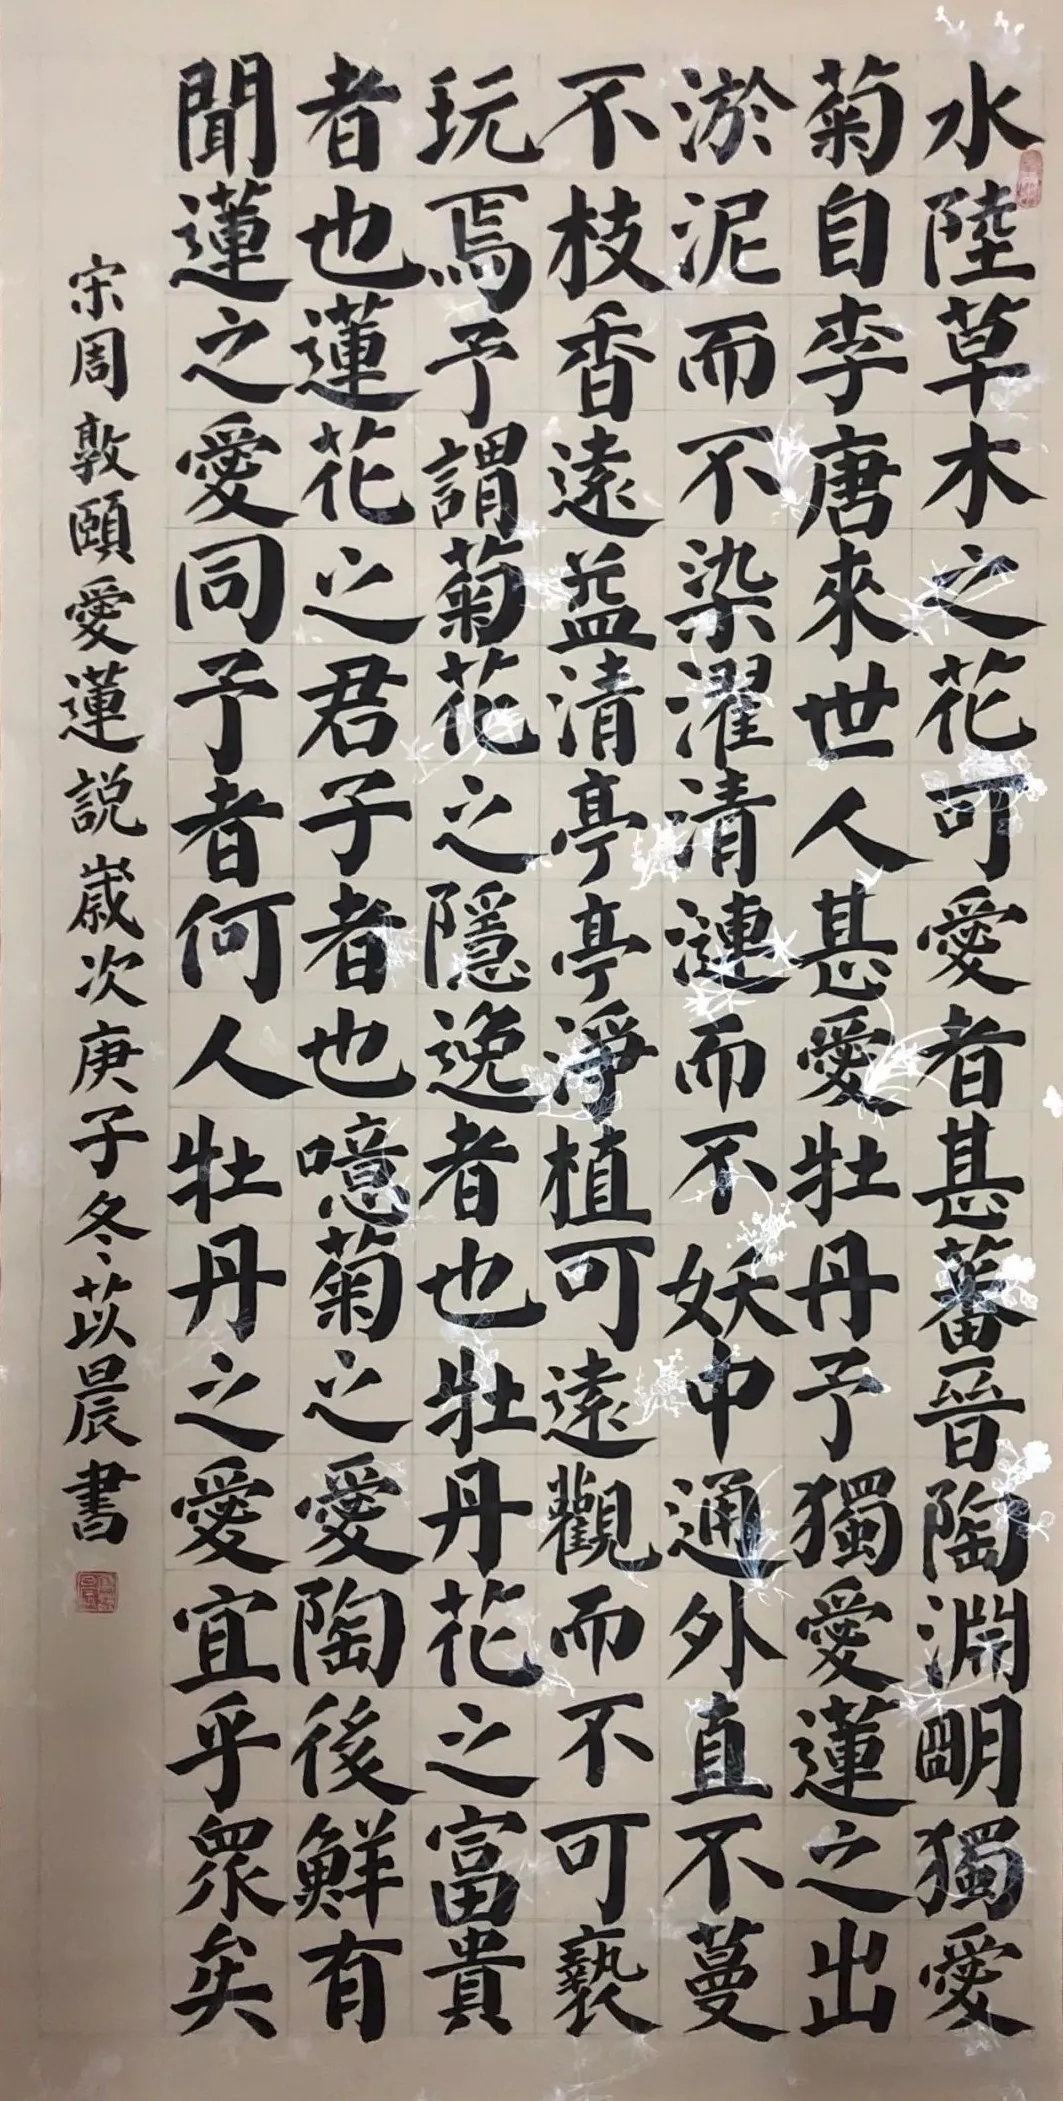 水陸草木之花可愛者甚蕃晉陶淵明獨愛
菊自李唐來世人甚愛牡丹予獨愛蓮之出
淤泥而不染濯清漣而不妖中通外直不蔓
不枝香遠益清亭亭淨植可遠觀而不可褻
玩焉予謂菊花之隱逸者也牡丹花之富貴
者也蓮花之君子者也噫菊之愛陶後鮮有
聞蓮之愛同予者何人牡丹之愛宜乎眾矣
宋周敦頤愛蓮説歲次庚子冬苡晨書